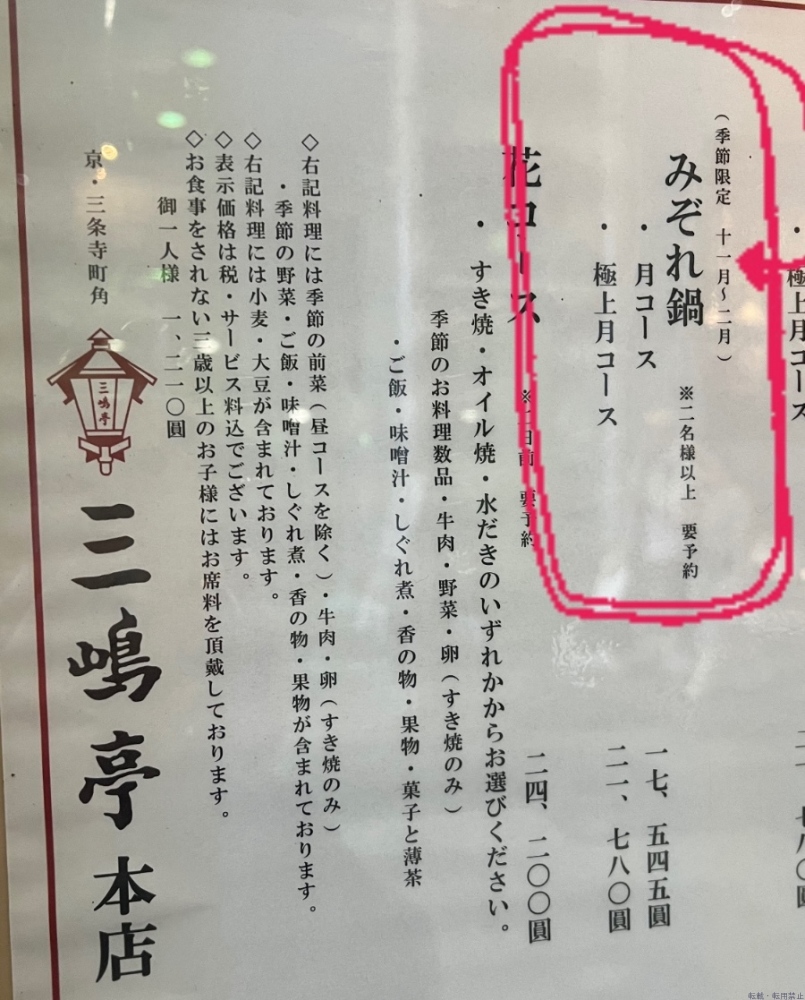 極上月コース
(季節限定 十一月〜二月)
みぞれ鍋 ※二名様以上 要予約
・月コース 一七、五四五圓
・極上月コース 二一、七八〇圓
花コース 要予約 二四、二〇〇圓
・すき焼・オイル焼・水だきのいずれかからお選びください。
季節のお料理数品・牛肉・野菜・卵(すき焼のみ)
・ご飯・味噌汁・しぐれ煮・香の物・果物・菓子と薄茶
◇右記料理には季節の前菜(昼コースを除く)・牛肉・卵(すき焼のみ)
・季節の野菜・ご飯・味噌汁・しぐれ煮・香の物・果物が含まれております。
◇右記料理には小麦・大豆が含まれております。
◇表示価格は税・サービス料込でございます。
◇お食事をされない三歳以上のお子様にはお席料を頂戴しております。
御一人様 一、二一〇圓
京・三条寺町角
三嶋亭
三嶋亭本店
転載・転用禁止